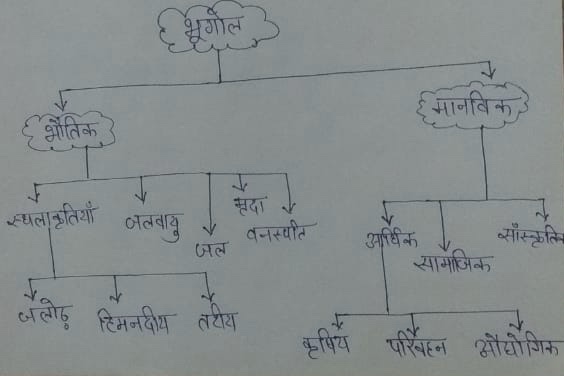 भूगोल
भौतिक
मानविक
स्थलाकृतियाँ
जलवायु
जल
मृदा
वनस्पति
आर्थिक
सामाजिक
साँस्कृतिक
जलोढ़
हिमनदीय
तटीय
कृषिय
परिवहन
औद्योगिक